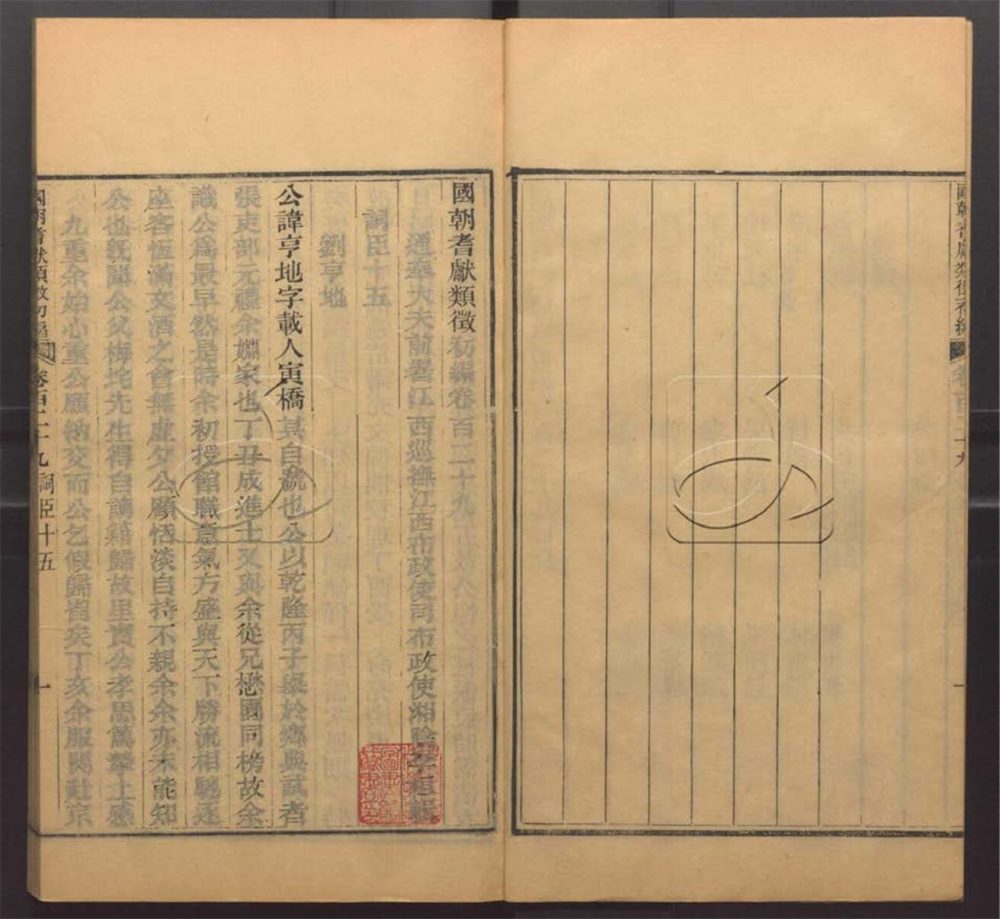 國朝耆獻類徵初編卷百二十九
通奉大夫前署江西巡撫江西布政使司布政使湘陰李桓輯
詞臣十五
劉亨地
公諱亨地字載人寅橋其自號也公以乾隆丙子舉於鄉典試者
張吏部元禮余姻家也丁丑成進士又與余從兄懋園同榜故余
識公爲最早然是時余初授館職意氣方盛與天下勝流相馳逐
座客恆滿文酒之會無虛夕公顧恬淡自持不親余余亦未能知
公也既聞公父梅垞先生得自謫籍歸故里實公孝思篤摯上感
九重余始心重公願納交而公乞假歸省矣丁亥余服闋赴京
國朝耆獻類徵初編 卷百二十九 詞臣十五 一